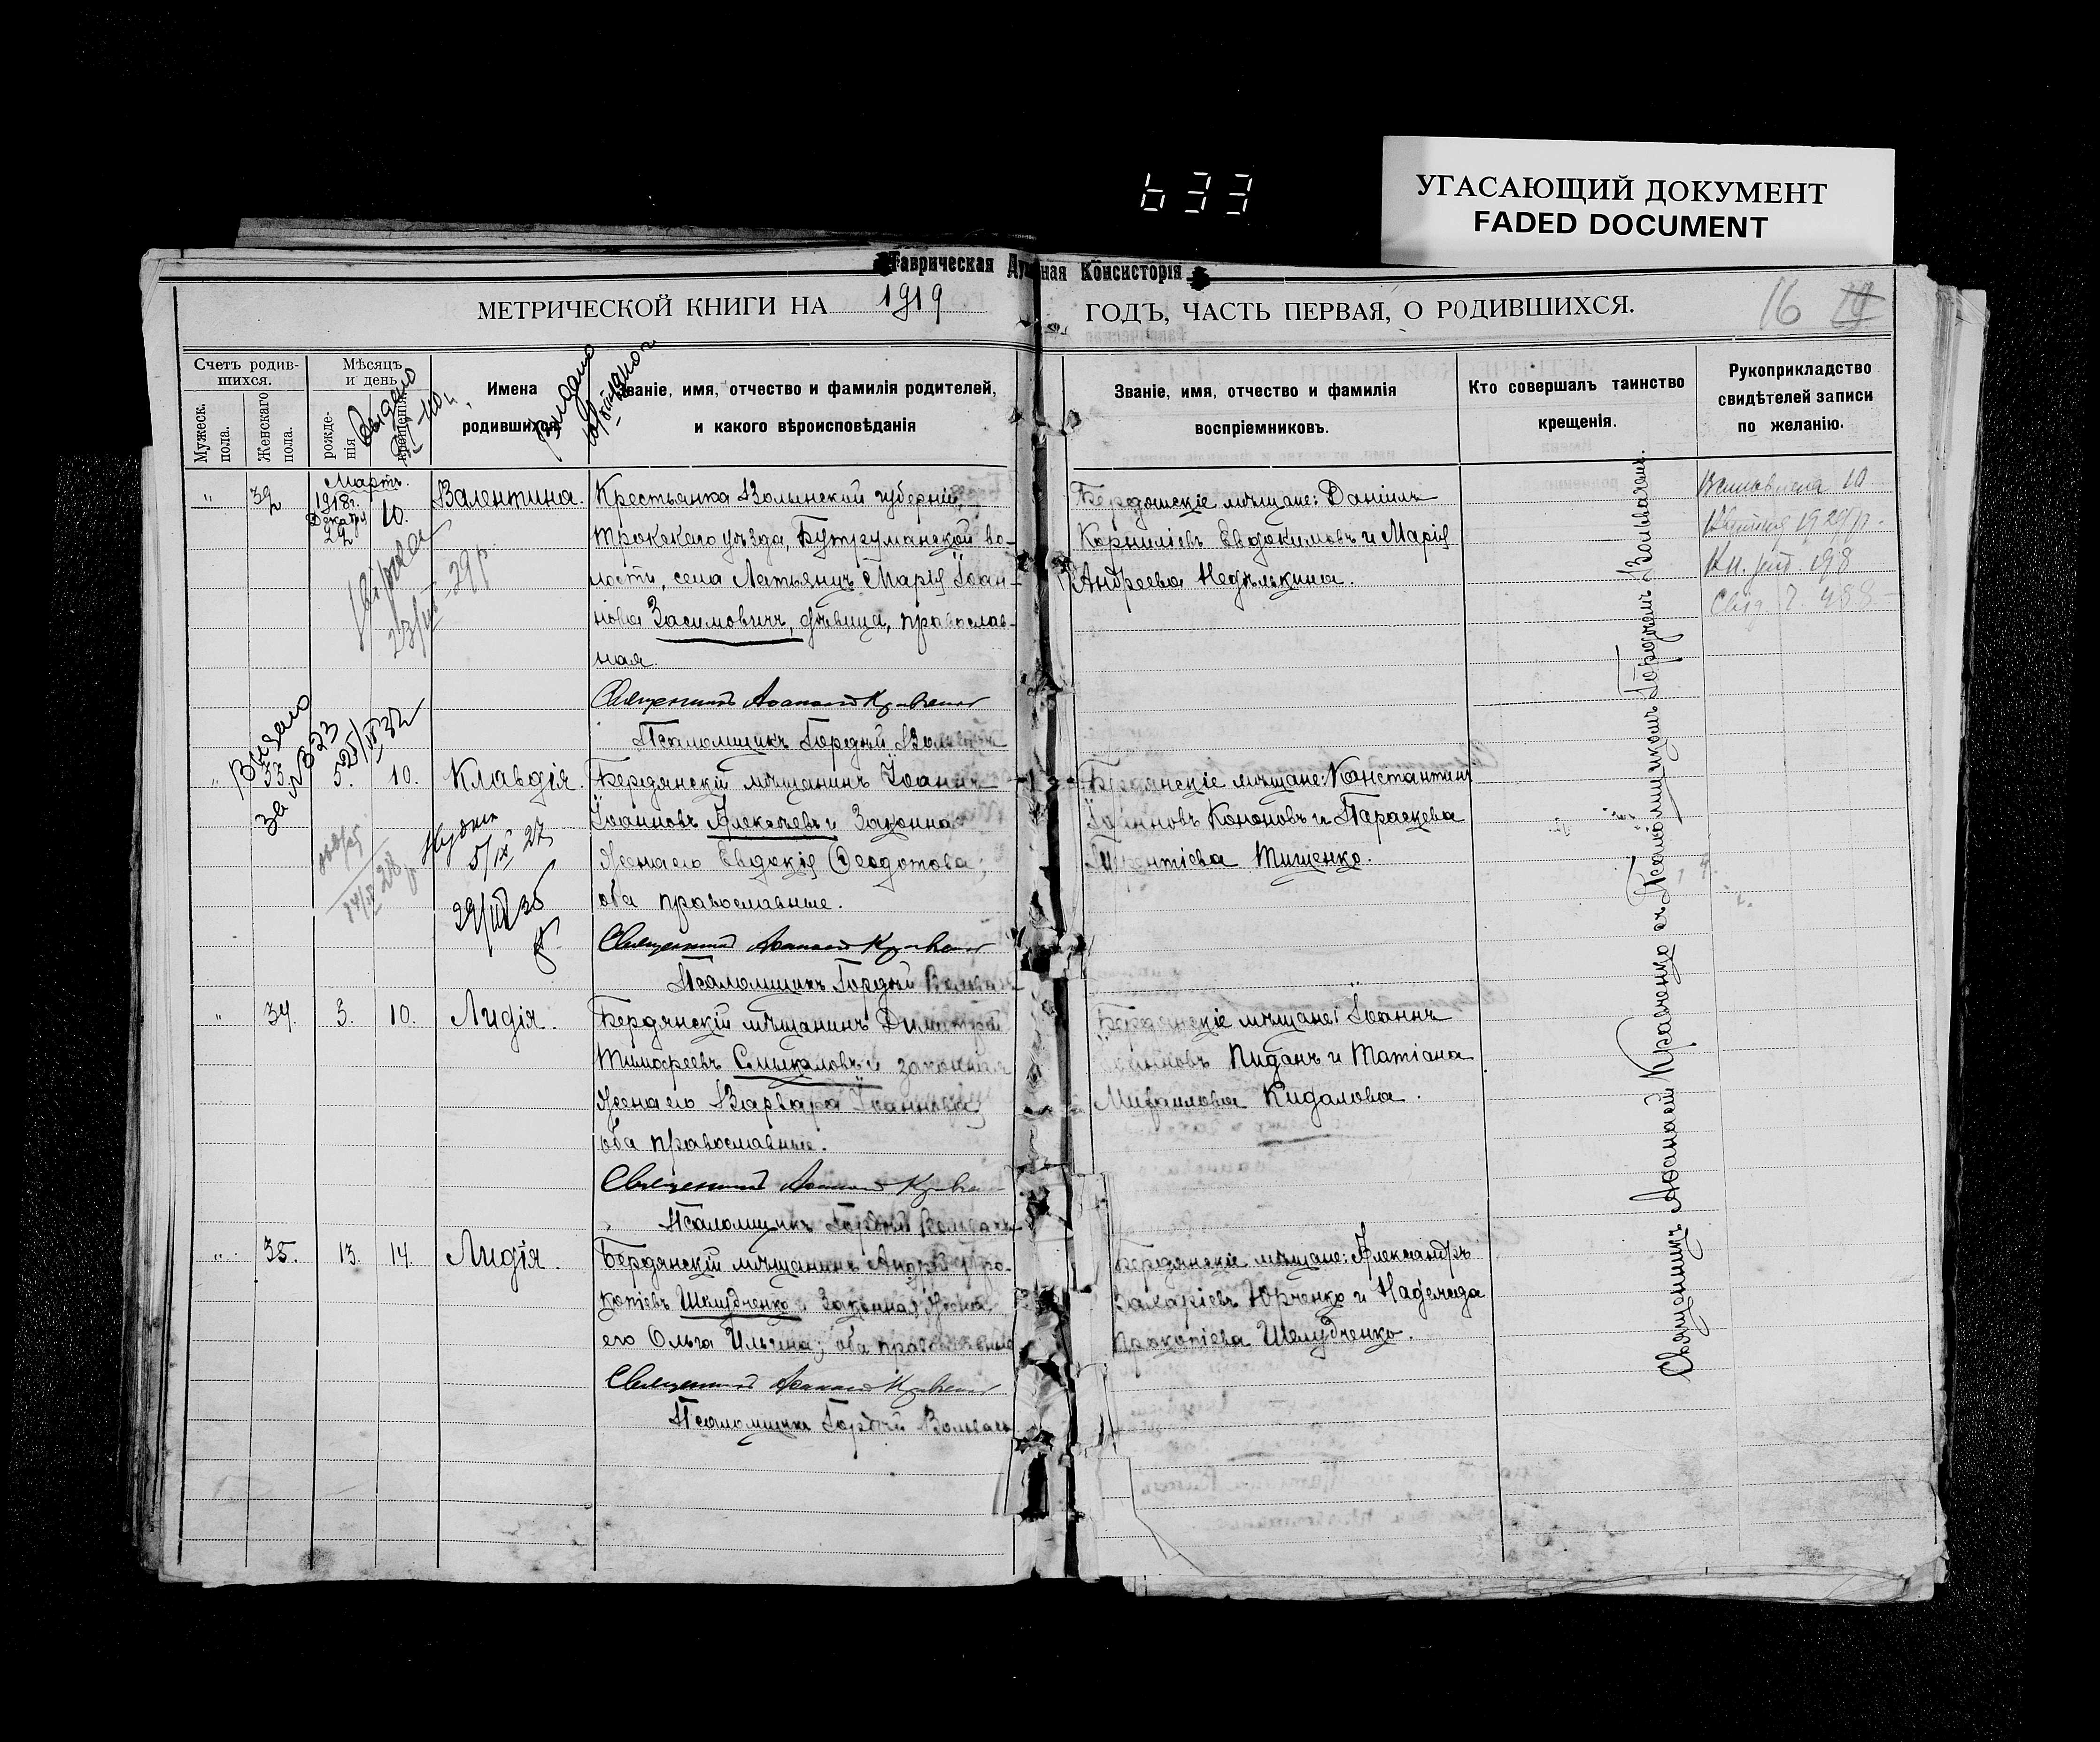 633
УГАСАЮЩИЙ ДОКУМЕНТ
FADED DOCUMENT
Таврическая Духовная Консисторія
МЕТРИЧЕСКОЙ КНИГИ НА 1919
ГОДЪ, ЧАСТЬ ПЕРВАЯ, О РОДИВШИХСЯ.
16
Счетъ родив-
шихся.
Мужеск.
пола.
Женскаго
пола.
Мѣсяцъ
и день
рожде-
нія
крещенія
Имена
родившихся
Званіе, имя, отчество и фамилія родителей,
и какого вѣроисповѣданія
Званіе, имя, отчество и фамилія
воспріемниковъ.
Кто совершалъ таинство
крещенія.
Рукоприкладство
свидѣтелей записи
по желанію.
Выдано
Выдано
Мартъ.
" 32 1918г. Декабря 22 10. Валентина.
Крестьянка Волынской губерніи,
Трокскаго уѣзда, Бутрыманской во-
лости, села Марія Іоан-
нова Засимовичъ, дѣвица, православ-
ная.
Священникъ Аѳанасій Кравченко
Псаломщикъ Гордѣй
Бердянскіе мѣщане: Даніилъ
Корниліевъ Евдокимовъ и Марія
Андреева Недѣлькина.
10
1929р.
198
488
23/VI-29р.
Выдано
за № 323
" 33. 5. 10. Клавдія.
Бердянскій мѣщанинъ Іоаннъ
Іоанновъ Алексѣевъ и законная
жена его Евдокія Ѳеодотова;
оба православные.
Священникъ Аѳанасій Кравченко
Псаломщикъ Гордѣй
Бердянскіе мѣщане: Константинъ
Іоанновъ Кононовъ и Параскева
Тищенко.
5/IX 27
" 34. 3. 10. Лидія.
Бердянскій мѣщанинъ Димитрій
Тимофеевъ Смыкаловъ и законная
жена его Варвара Іоаннова;
оба православные.
Священникъ Аѳанасій Кравченко
Псаломщикъ Гордѣй
Бердянскіе мѣщане: Іоаннъ
Пиданъ и Татіана
Михаилова Кидалова.
" 35. 13. 14. Лидія.
Бердянскій мѣщанинъ Андрей Про-
копіевъ Шелудченко и законная жена
его Ольга Ильина; оба православные
Священникъ Аѳанасій Кравченко
Псаломщикъ Гордѣй
Бердянскіе мѣщане: Александръ
Захаріевъ Юрченко и Надежда
Прокопіева Шелудченко.
Священникъ Аѳанасій Кравченко съ Псаломщикомъ Гордѣемъ